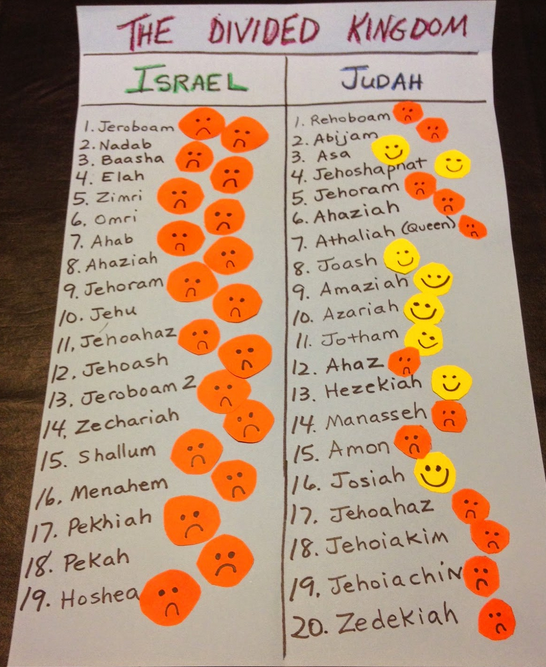 THE DIVIDED KINGDOM
ISRAEL
1. Jeroboam
2. Nadab
3. Baasha
4. Elah
5. Zimri
6. Omri
7. Ahab
8. Ahaziah
9. Jehoram
10. Jehu
11. Jehoahaz
12. Jehoash
13. Jeroboam 2
14. Zechariah
15. Shallum
16. Menahem
17. Pekhiah
18. Pekah
19. Hoshea
JUDAH
1. Rehoboam
2. Abijam
3. Asa
4. Jehoshaphat
5. Jehoram
6. Ahaziah
7. Athaliah (Queen)
8. Joash
9. Amaziah
10. Azariah
11. Jotham
12. Ahaz
13. Hezekiah
14. Manasseh
15. Amon
16. Josiah
17. Jehoahaz
18. Jehoiakim
19. Jehoiachin
20. Zedekiah